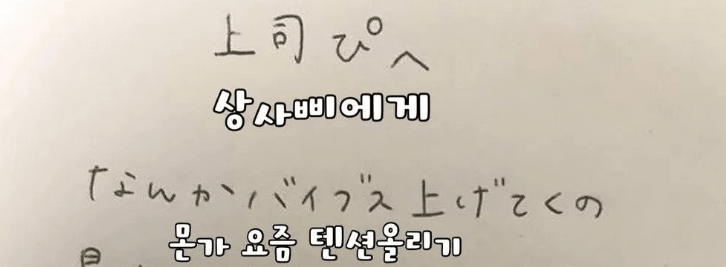 上司ぴへ
상사삐에게
なんかバイブス上げてくの
몬가 요즘 텐션올리기